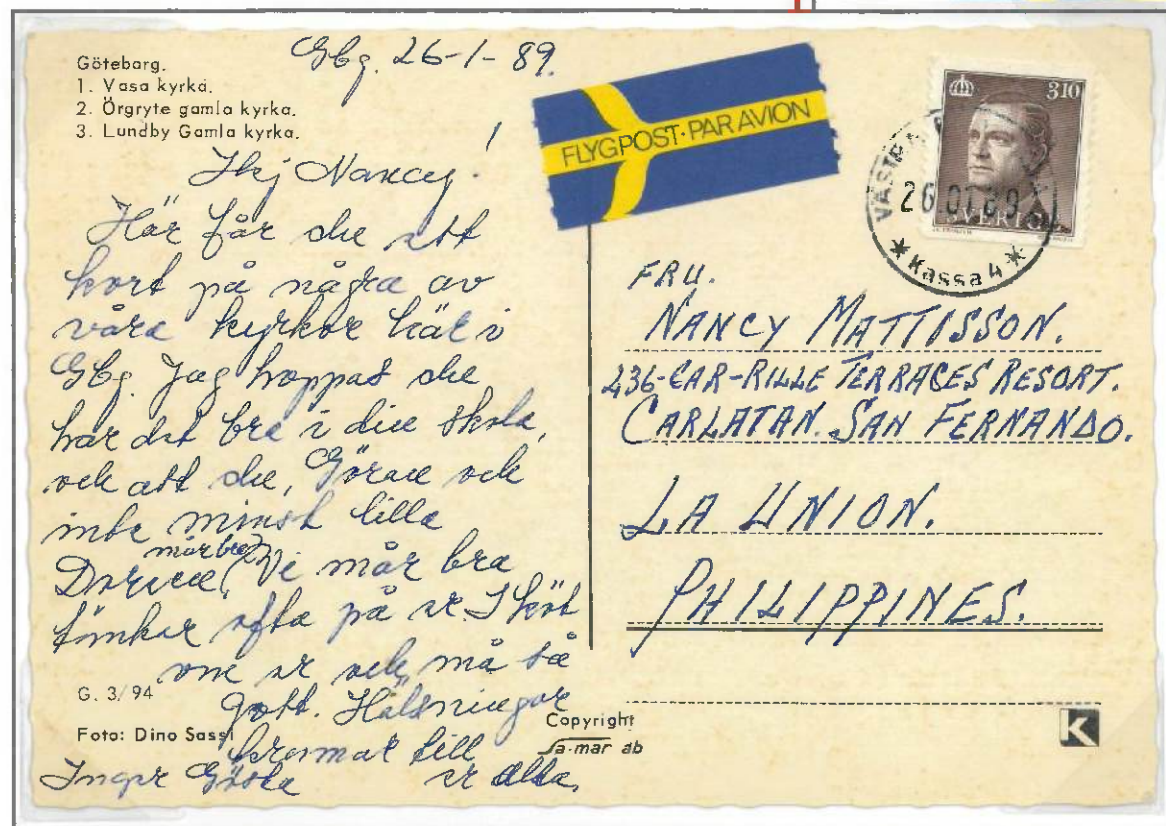 Göteborg.
1. Vasa kyrka.
2. Örgryte gamla kyrka.
3. Lundby Gamla kyrka.
Gbg. 26-1-89.
Hej Nancy!
Här får du ett
kort på några av
våra kyrkor här i
Gbg. Jag hoppas du
har det bra i din skola,
och att du, Göran och
inte minst lilla
mår bra
Vi mår bra
tänker ofta på er. Sköt
om er och må så
gott. Hälsningar
kramar till
er alla.
Gösta
G. 3/94
Foto: Dino Sassi
Copyright
Sa-mar ab
FLYGPOST·PAR AVION
310
SVERIGE
VÄSTRA
26.01.89
* Kassa 4 *
FRU.
NANCY MATTISSON.
236-CAR-RILLE TERRACES RESORT.
CARLATAN. SAN FERNANDO.
LA UNION.
PHILIPPINES.
K